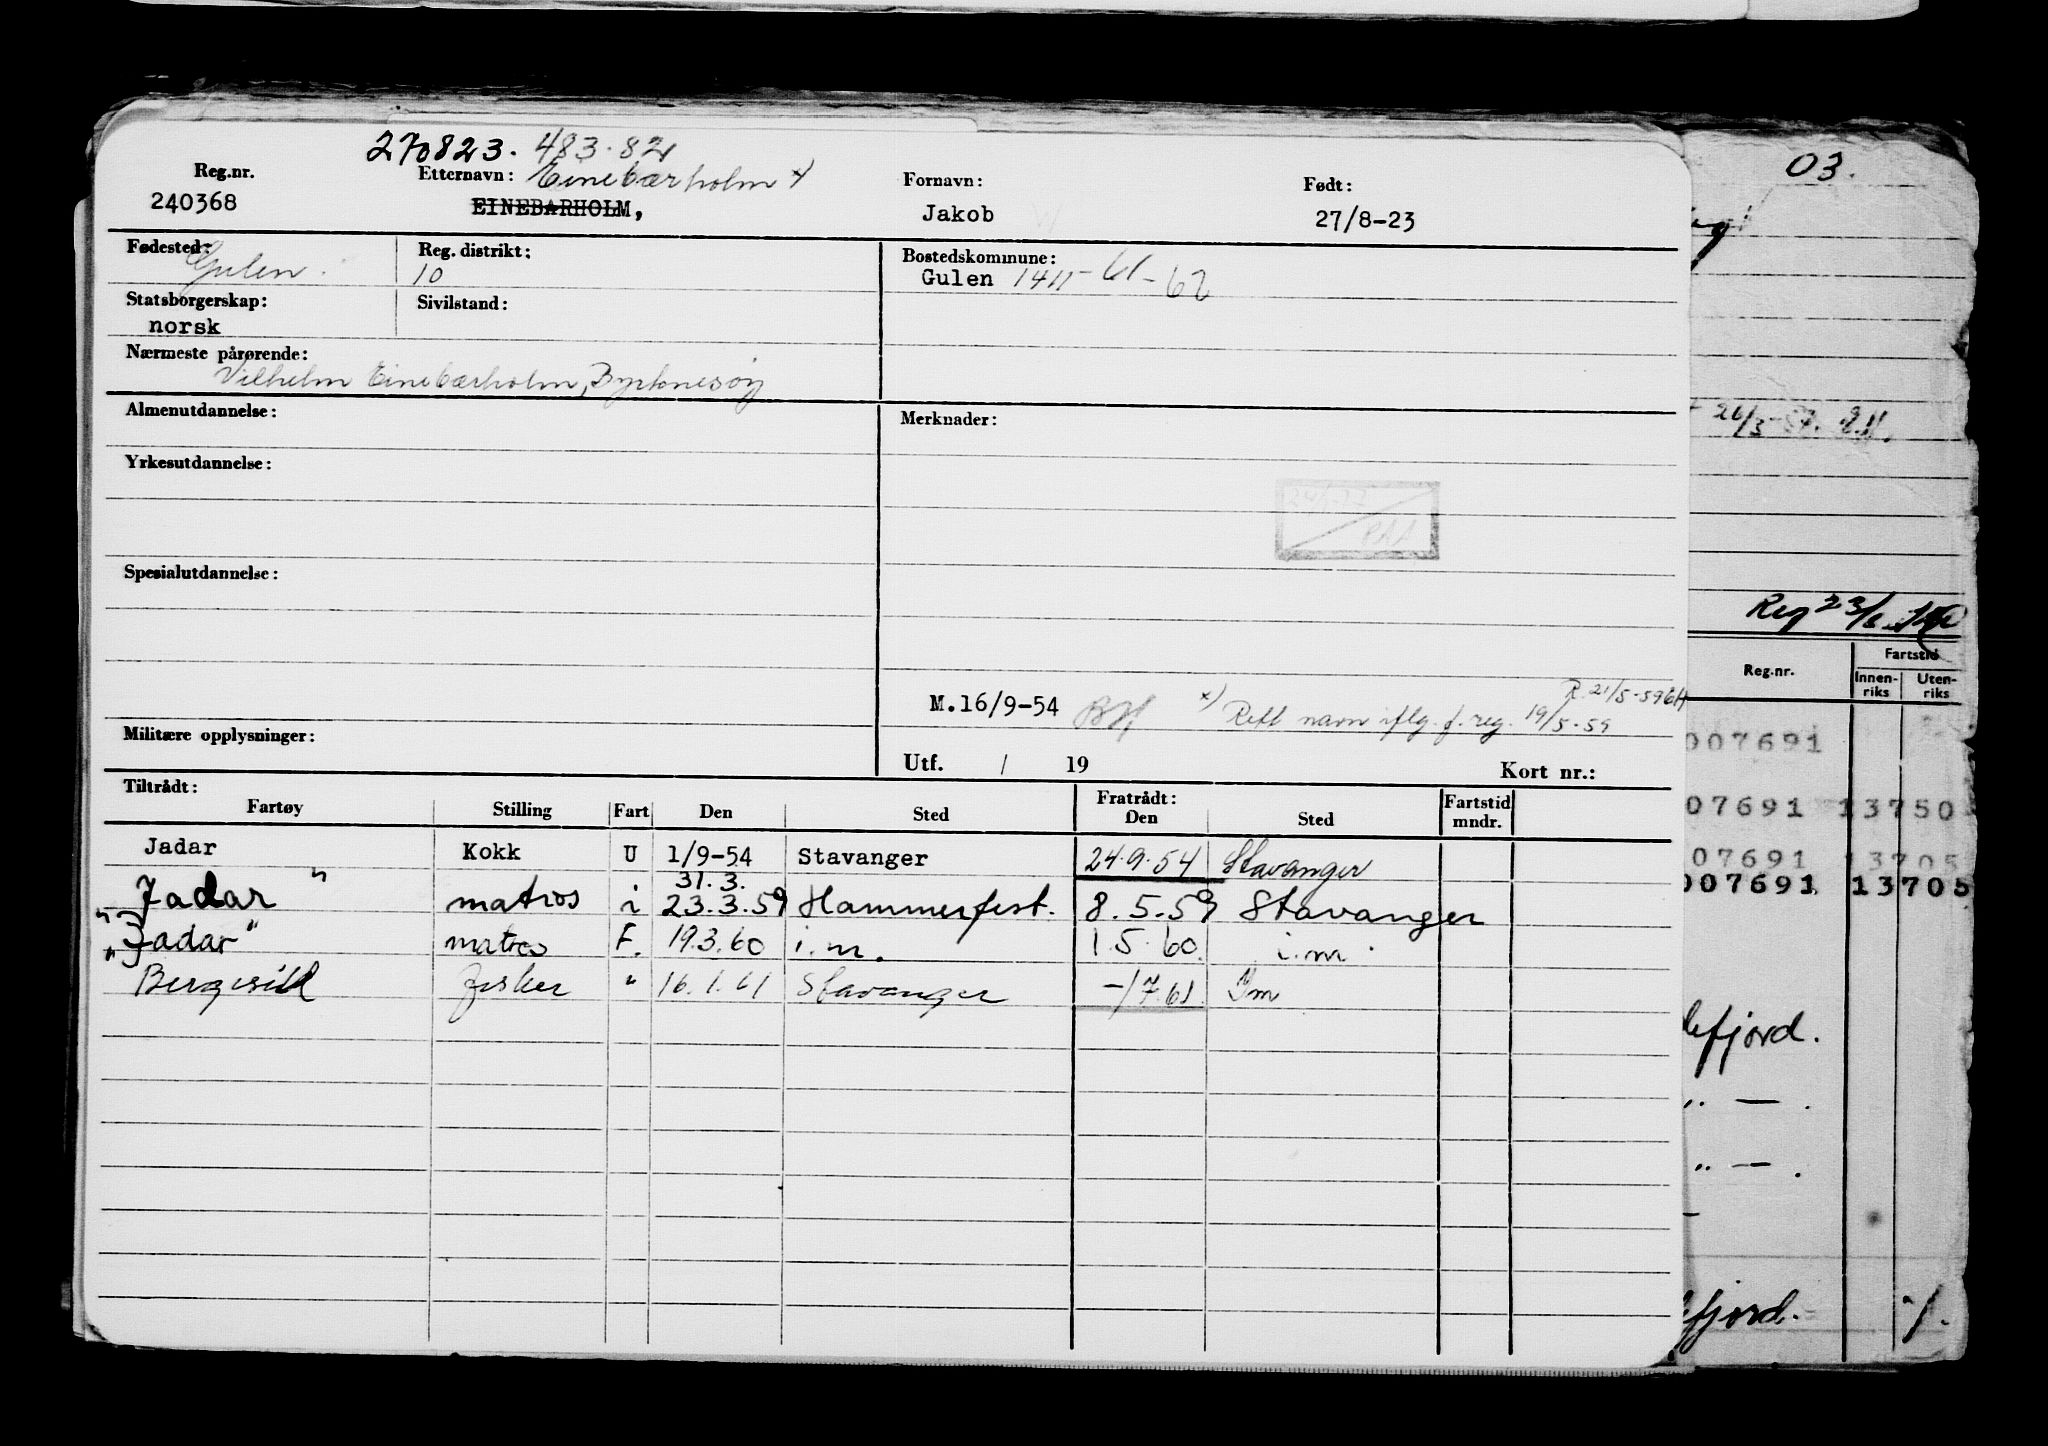 270823. 483.82
Reg.nr. Etternavn: Einebærholm x) Fornavn: Født:
240368 EINEBARHOLM, Jakob 27/8-23
Fødested: Gulen. Reg. distrikt: 10 Bostedskommune: Gulen 1411-61-62
Statsborgerskap: norsk Sivilstand:
Nærmeste pårørende:
Vilhelm Einebærholm, Byrknesøy
Almenutdannelse: Merknader:
Yrkesutdannelse:
Spesialutdannelse:
R. 21/5-59
M.16/9-54 x) Rett navn iflg. f. reg. 19/5-59
Militære opplysninger:
Utf. / 19 Kort nr.:
Tiltrådt: Fratrådt: Fartstid
Fartøy Stilling Fart Den Sted Den Sted mndr.
Jadar Kokk U 1/9-54 Stavanger 24.9.54 Stavanger
31.3.
"Jadar" matros i 23.3.59 Hammerfest. 8.5.59 Stavanger
"Jadar" matros F. 19.3.60 i.m. 1.5.60 i.m.
Bergesild fisker " 16.1.61 Stavanger -/7.61 Im
03.
26/3-57.
Reg 23/
Reg.nr. Fartstid
Innen-riks Uten-riks
007691
07691 13750
07691 13705
007691 13705
efjord.
" — .
" — .
fjord.